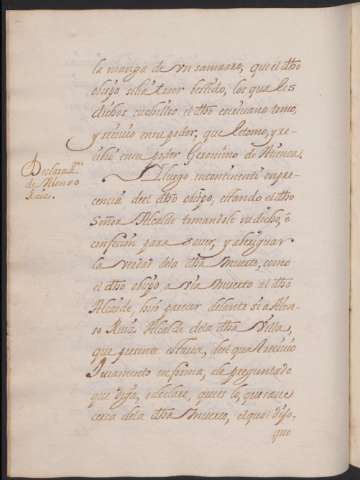 la manga de un samarro, que el dho
obispo estava vestido, los que les
dichos cuchillos el dho escrivano tomo,
y recivio en su poder, que letomo, y re-
cibió en su poder Geronimo de Huenca.
Declaraⁿ.
de Alonso
Ruiz.
Y luego incontinente en pre-
sencia del dho obispo, estando el dho
Señor Alcalde tomandole su dicho, o
confesion para saver, y aberiguar
la verdad dela dha muerte, como
el dho obispo a sido muerto el dho
Alcalde, hiso parecer delante si a Alon-
so Ruiz Alcalde dela dha Villa,
que presente estava, del qual recivio
Juramento en forma, de preguntado
que diga, i declare, que es lo que save
cerca dela dha Muerte, el qual dijo,
que